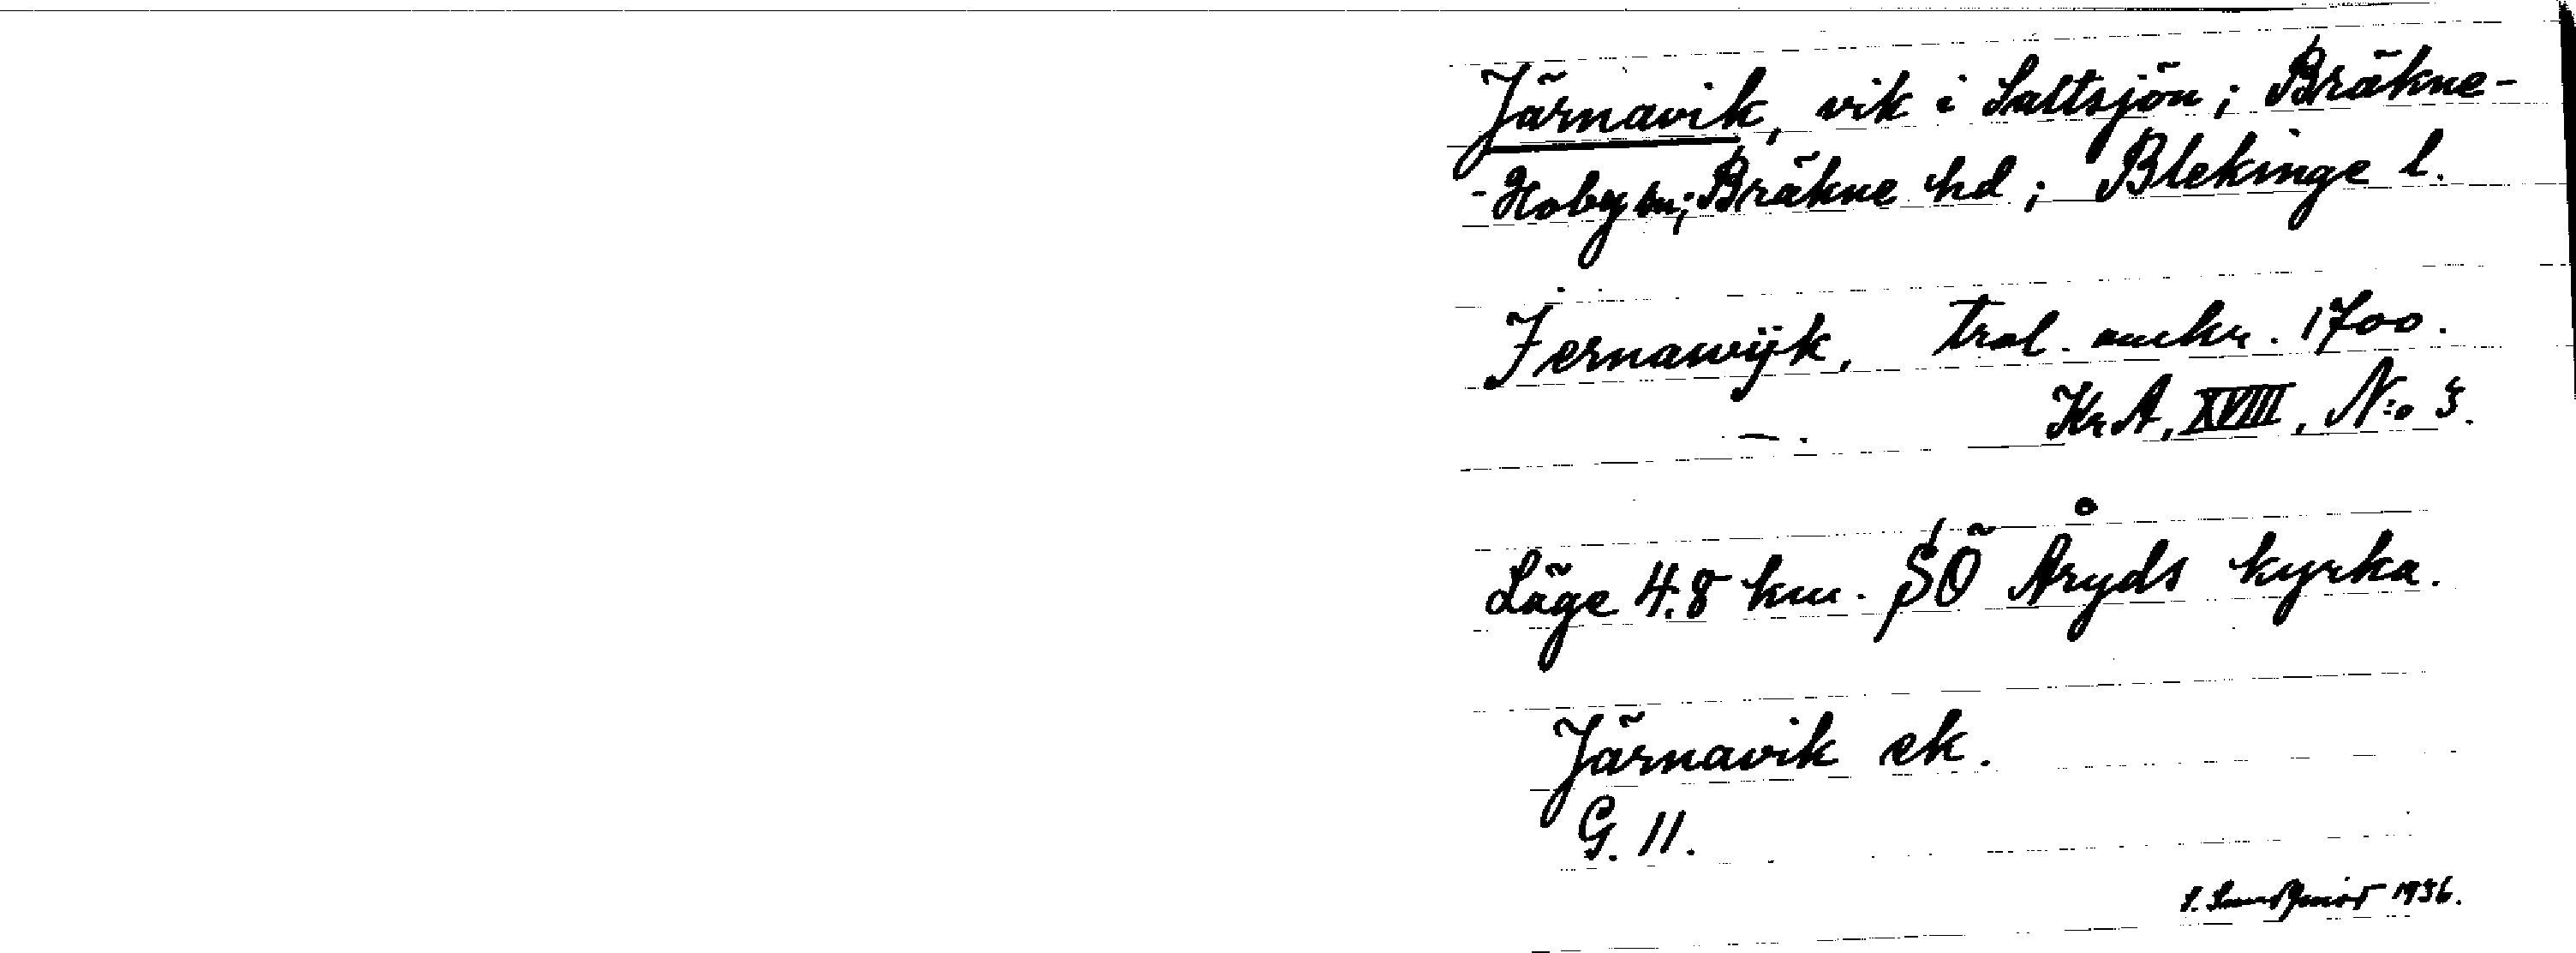 Järnavik, vik i Saltsjön; Bräkne-
-Hoby sn; Bräkne hd; Blekinge l.
Jernawijk, trol. omkr. 1700.
Kr. A, XVIII, N:o 3.
Läge 4.8 km. SÖ Åryds kyrka.
Järnavik ek.
G. 11.
1936.